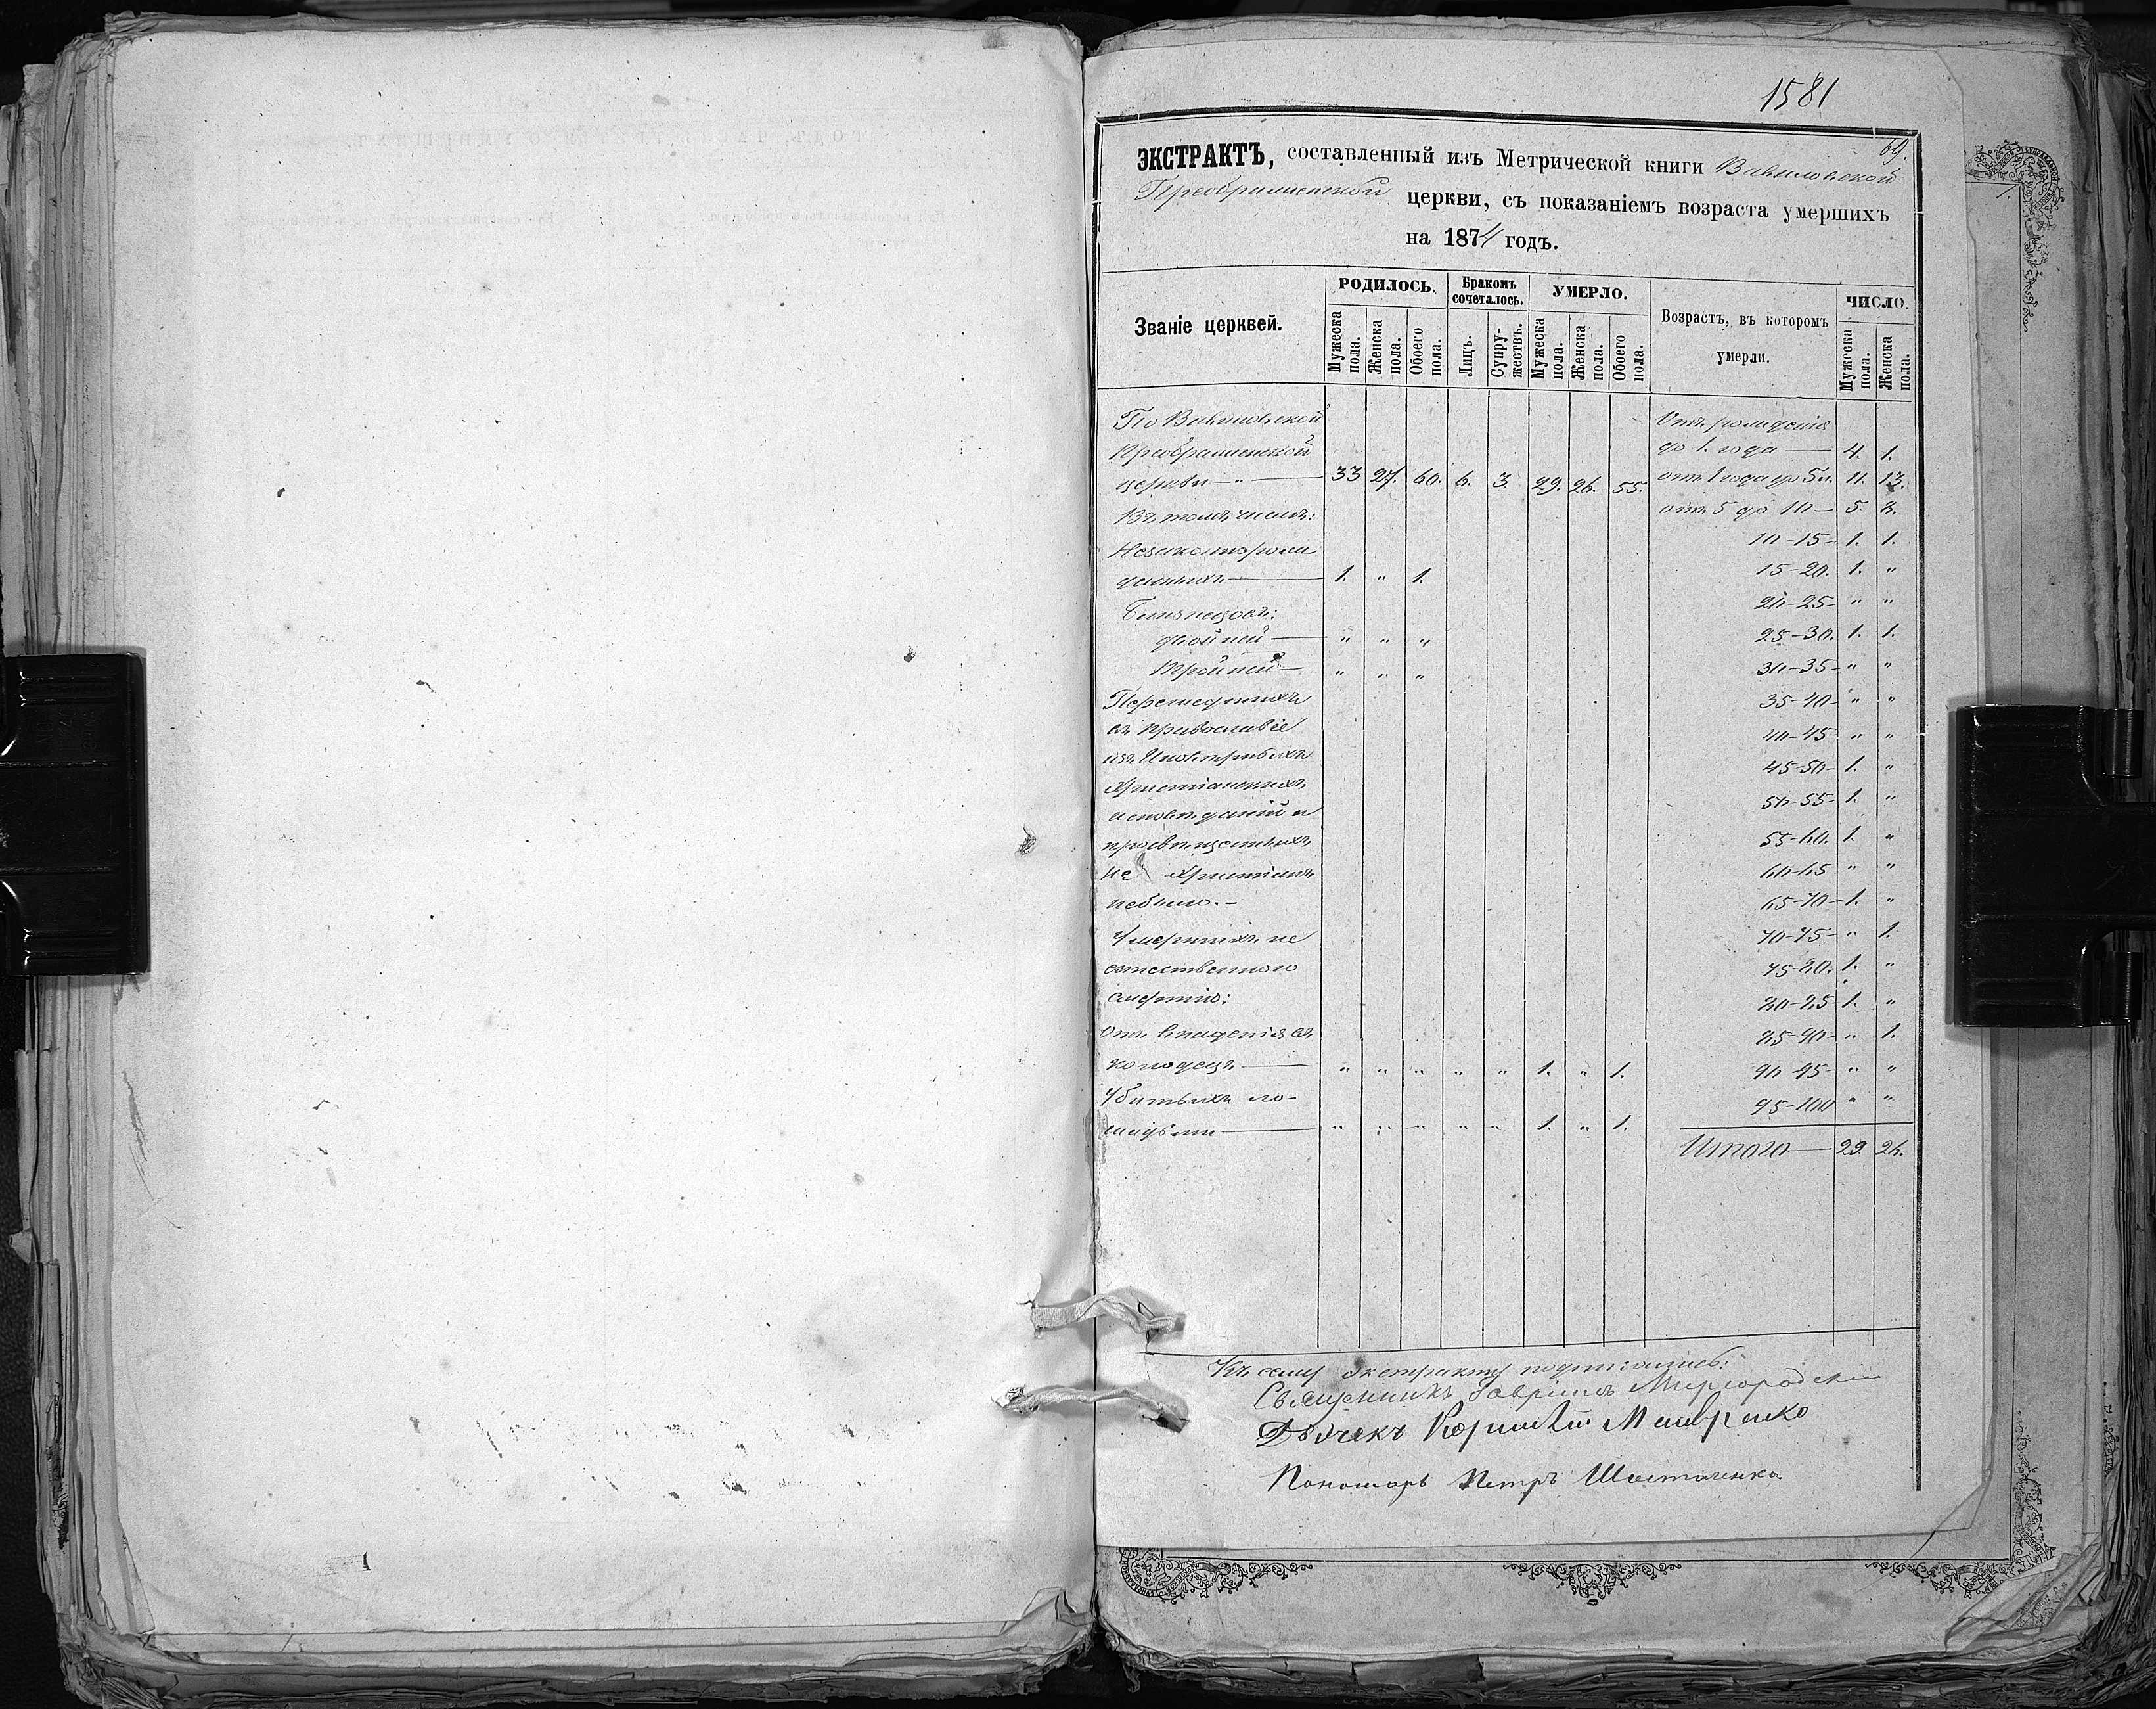 1581
69.
ЭКСТРАКТЪ, составленный изъ Метрической книги Вавиловской
Преображенской церкви, съ показаніемъ возраста умершихъ
на 1874 годъ.
Званіе церквей.
РОДИЛОСЬ.
Бракомъ сочеталось.
УМЕРЛО.
Возрастъ, въ которомъ умерли.
ЧИСЛО.
Мужеска пола. Женска пола. Обоего пола. Лицъ. Супружествъ. Мужеска пола. Женска пола. Обоего пола. Мужеска пола. Женска пола.
По Вавиловской
Преображенской
церкви — „ — 33 27. 60. 6. 3. 29. 26. 55.
Въ томъ числѣ:
Незаконнорож-
денныхъ — 1. „ 1.
Близнецовъ:
двойней — „ „ „
Тройней — „ „ „
Перешедшихъ
въ православіе
изъ Иновѣрныхъ
Христіанскихъ
исповѣданій и
просвѣщенныхъ
не Христіанъ
небыло. –
Умершихъ не
естественною
смертію:
Отъ впаденія въ
колодезь — „ „ „ „ „ 1. „ 1.
Убитыхъ ло-
шадьми — „ „ „ „ „ 1. „ 1.
Отъ рожденія
до 1. года — 4. 1.
отъ 1 года до 5 л. 11. 13.
отъ 5 до 10 — 5. 8.
10–15– 1. 1.
15–20. 1. „
20–25– „ „
25–30. 1. 1.
30–35– „ „
35–40– „ „
40–45– „ „
45–50– 1. „
50–55– 1. „
55–60. 1. „
60–65 „ „
65–70– 1. „
70–75– „ 1.
75–80. 1. „
80–85– 1. „
85–90– „ 1.
90–95– „ „
95–100 „ „
Итого — 29. 26.
Къ сему экстракту подписались:
Священникъ Гавріилъ Миргородскій
Дьячекъ Корнилій
Пономарь Петръ